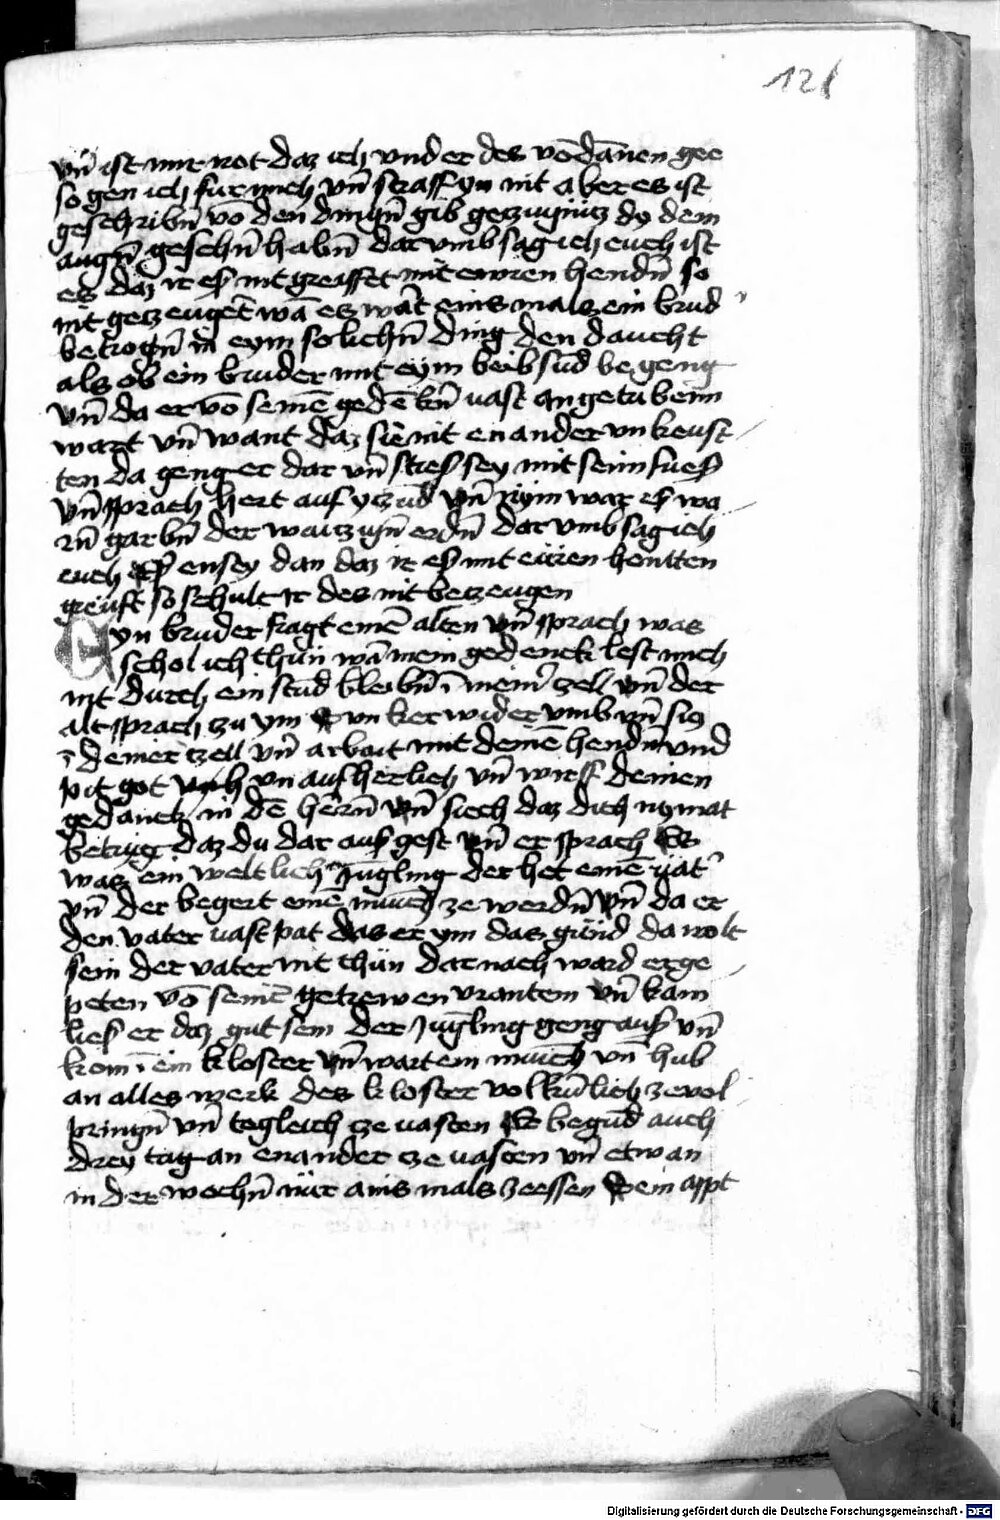 121
vn̄ ist mir not daz ich vnder des vō dānen gee
so gen ich fur mich vn̄ straff yn nit aber es ist
geschribn̄ vō den dingn̄ gib getzugnüz dy dein
augn̄ gesehn̄ habn̄ dar vmb sag ich euch ist
es daz ir eß nit greiffet mit ewren hendn̄ so
nit getzeuget wā es wart eins mals ein brud
betrogn̄ in eym solichn̄ ding den daucht
als ob ein bruder mit eym beib sūd begeng
vn̄ da er vō seinē gedēkn̄ vast an getribenn
wart vn̄ want daz sie mit enander vnkeusch
ten da geng er dar vn̄ stieß sey mit seim fueß
vn̄ sprach hert auf yczūd vn̄ nym war eß wa
rn̄ garbn̄ der waitz ygn̄ erdn̄ dar vmb sag ich
euch eß ensey dan daz ir eß mit euren hentten
greift so schult ir des nit betzeugen
Eyn bruder fragt einē alten vn̄ sprach was
schol ich thun wā mein gedenck lest mich
nit durch ein stūd bleibn̄ ī meinr̄ zell vn̄ der
alt sprach zu ym Svn ker wider vmb vn̄ sicz
ī deiner tzell vn̄ arbait mit deinē hendn̄ vnd
pit got vnaufherlich vn̄ wirff deinen
gedanck in dē hern̄ vn̄ siech daz dich nymāt
betrüg daz du dar auß gest vn̄ er sprach Es
was ein weltlich Jūgling der het einē vat
vn̄ der begert einē münch ze werdn̄ vn̄ da er
den vater vast pat das er ym das günd da wolt
sein der vater nit thün dar nach ward er ge
peten vō seinē getrewen vrantem vn̄ kam
ließ er daz gut sein der Jūgling geng auß vn̄
kom ī ein kloster vn̄ wart ein münch vn̄ hub
an alles werk des kloster volkūlich ze vol
pringn̄ vn̄ tegleich tze vasten Er begūd auch
drey tag an enander tze vasten vn̄ etwan
in der wochn̄ nür ains mals zeessen Sein appt
Digitalisierung gefördert durch die Deutsche Forschungsgemeinschaft - DFG